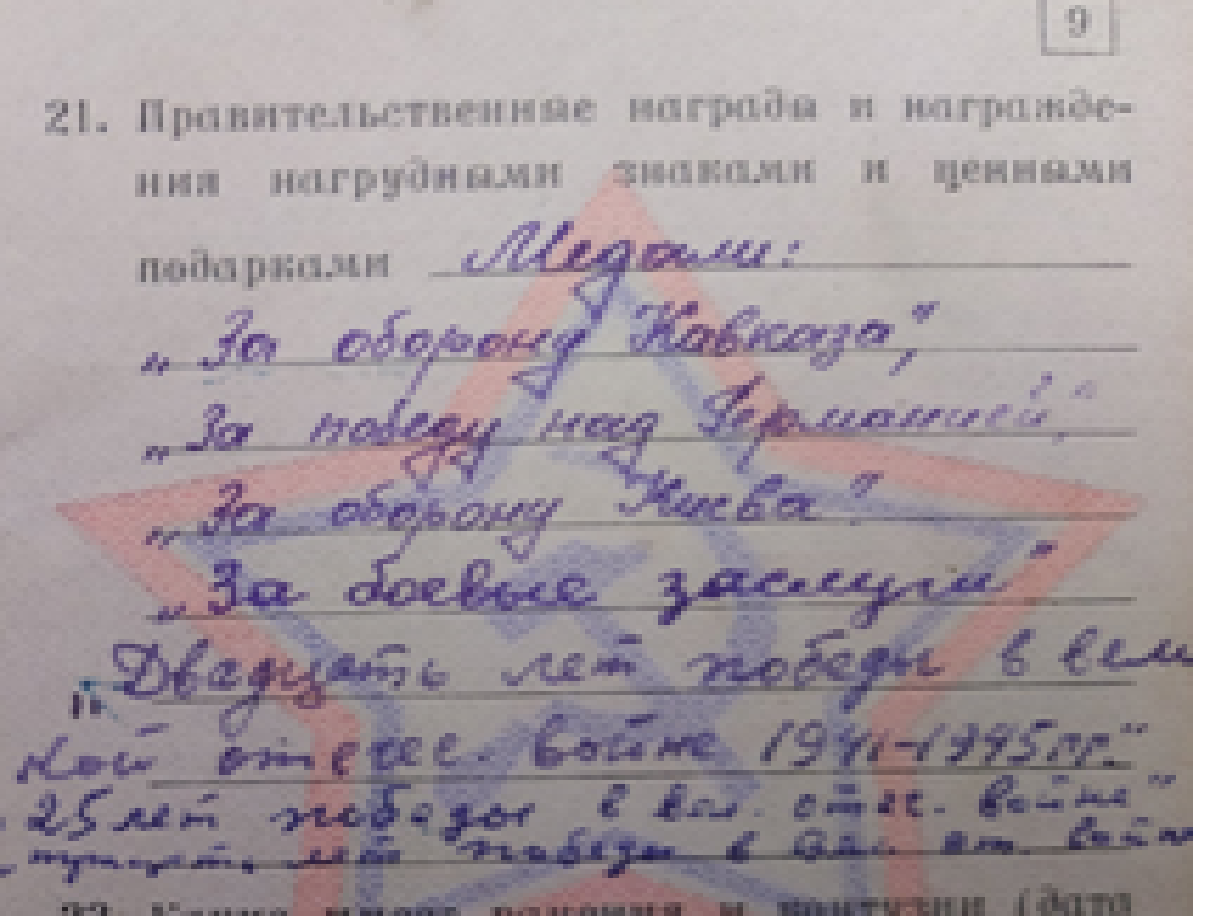 9
21. Правительственные награды и награжде-
ния нагрудными знаками и ценными
подарками Медали:
„За оборону Кавказа",
„За победу над Германией",
„За оборону Киева".
„За боевые заслуги"
„Двадцать лет победы в вели
кой отечес. войне 1941-1945гг."
25 лет победы в вел. отеч. войне"
лет победы в от. войн